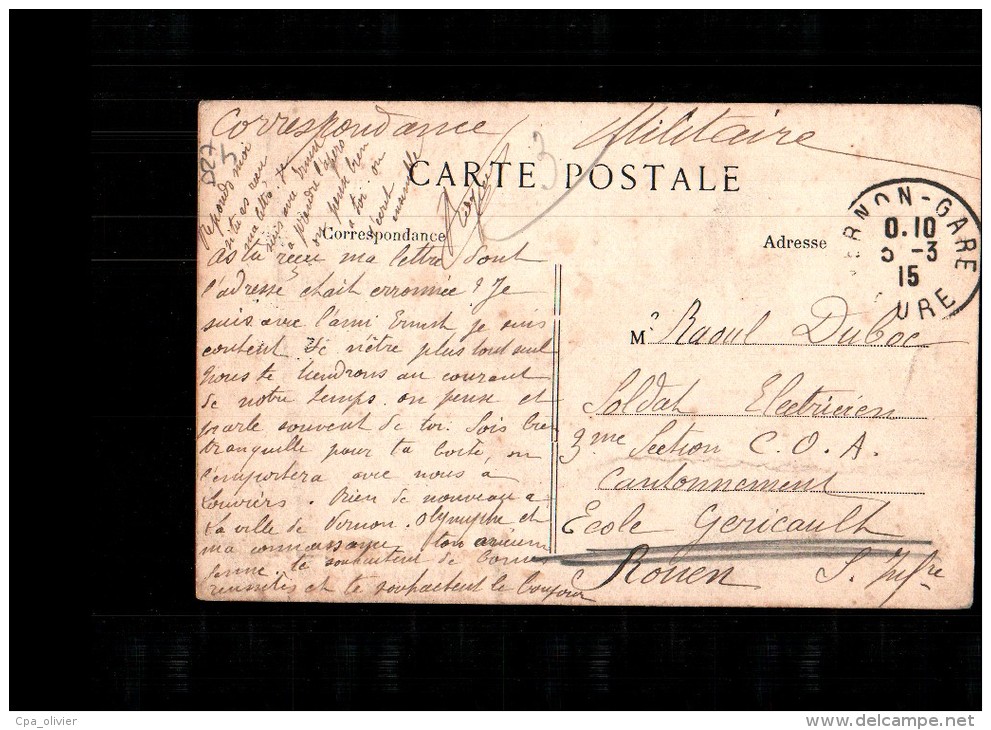 Correspondance Militaire
CARTE POSTALE
Correspondance
Adresse
VERNON-GARE
0.10
5 -3
15
EURE
Reponds moi
si tu as reçu
ma lettre Je
suis avec Ernest
à prendre l'apéro
on pense bien
à toi
As tu reçu ma lettre dont
l'adresse était erronnée ? Je
suis avec l'ami Ernest je suis
content de n'être plus tout seul
Nous te tiendrons au courant
de notre temps. on pense et
parle souvent de toi. Sois bien
tranquille pour ta boite, on
l'emportera avec nous à
Louviers. Rien de nouveau a
la ville de Vernon. Olympe et
ma connaissance ton ancienne
femme te souhaitent de bonnes
et te souhaitent le bonjour
Mr Raoul Duboc
Soldat Electricien
3me Section C. O. A.
Cantonnement
Ecole Gericault
Rouen S. Infre
Cpa_olivier
www.delcampe.net